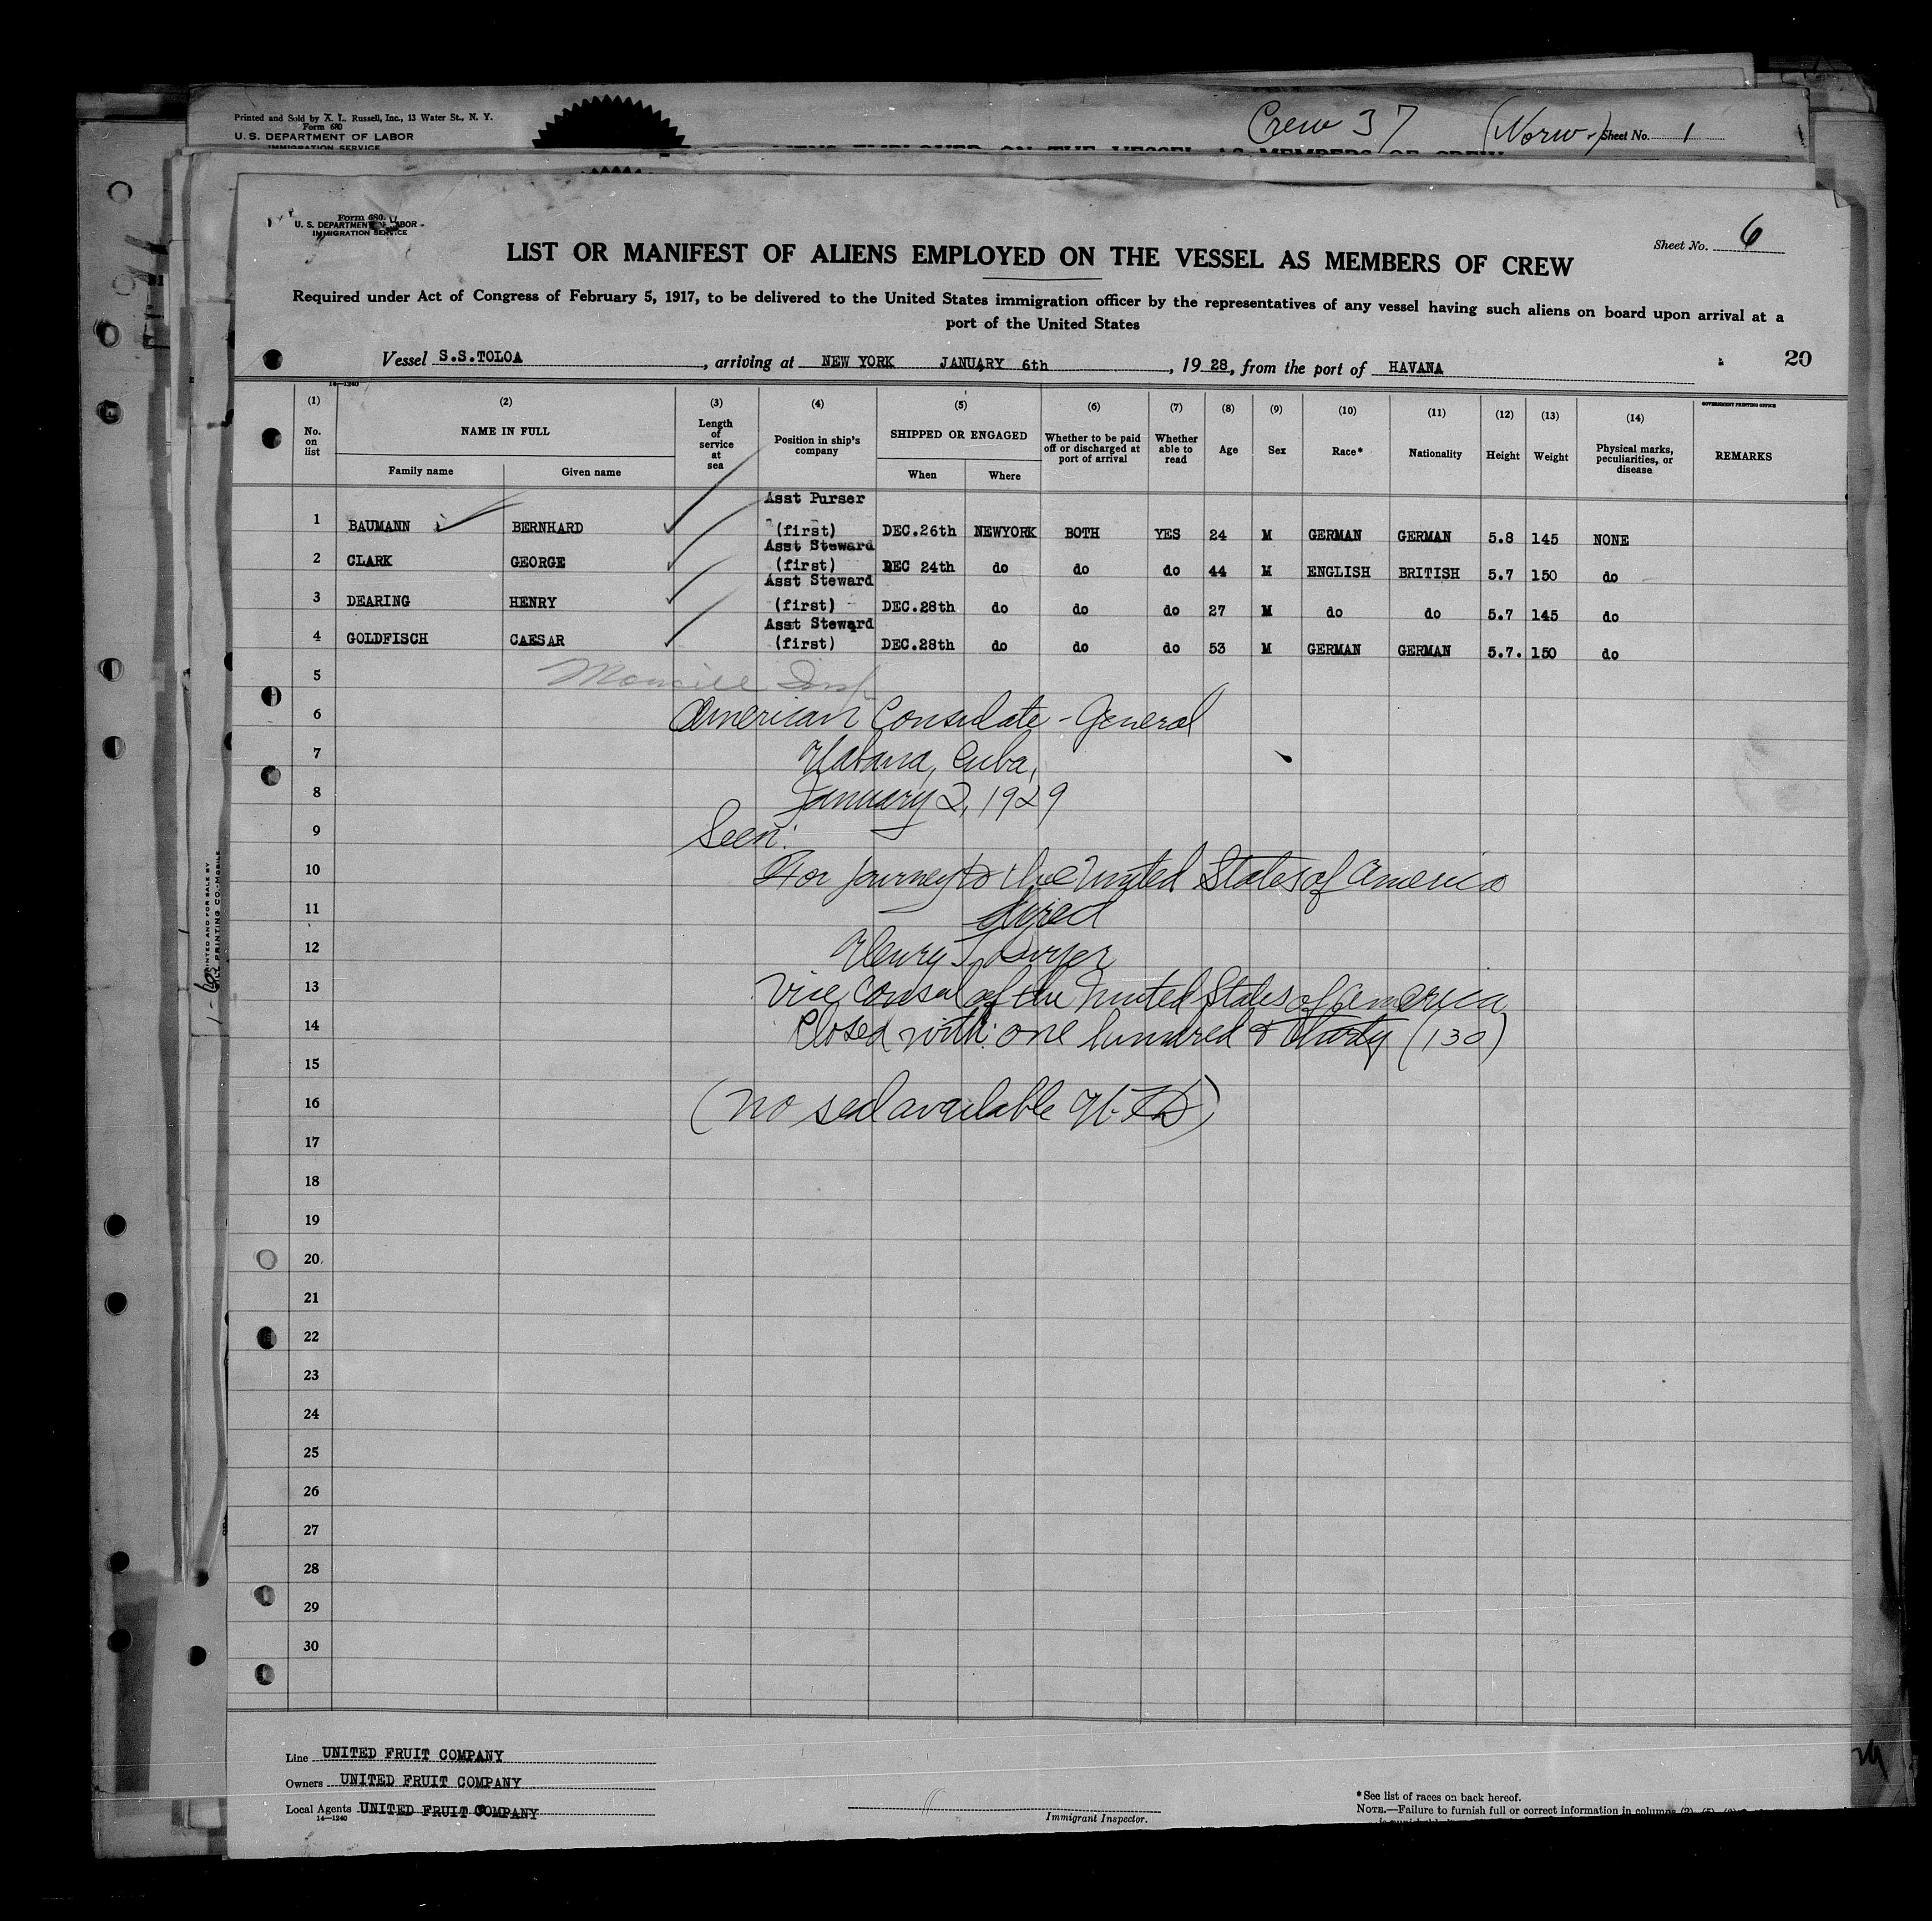 Printed and Sold by A. L. Russell, Inc., 13 Water St., N. Y.
Form 680
U. S. DEPARTMENT OF LABOR
IMMIGRATION SERVICE
Crew 37 (Norw-) Sheet No. 1
Form 680
U. S. DEPARTMENT OF LABOR
IMMIGRATION SERVICE
Sheet No. 6
LIST OR MANIFEST OF ALIENS EMPLOYED ON THE VESSEL AS MEMBERS OF CREW
Required under Act of Congress of February 5, 1917, to be delivered to the United States immigration officer by the representatives of any vessel having such aliens on board upon arrival at a
port of the United States
Vessel S.S.TOLOA, arriving at NEW YORK JANUARY 6th, 1928, from the port of HAVANA
20
14—1240
GOVERNMENT PRINTING OFFICE
(1) No. on list (2) NAME IN FULL Family name Given name (3) Length of service at sea (4) Position in ship's company (5) SHIPPED OR ENGAGED When Where (6) Whether to be paid off or discharged at port of arrival (7) Whether able to read (8) Age (9) Sex (10) Race* (11) Nationality (12) Height (13) Weight (14) Physical marks, peculiarities, or disease REMARKS
1 BAUMANN BERNHARD Asst Purser (first) DEC.26th NEWYORK BOTH YES 24 M GERMAN GERMAN 5.8 145 NONE
2 CLARK GEORGE Asst Steward (first) DEC 24th do do do 44 M ENGLISH BRITISH 5.7 150 do
3 DEARING HENRY Asst Steward (first) DEC.28th do do do 27 M do do 5.7 145 do
4 GOLDFISCH CAESAR Asst Steward (first) DEC.28th do do do 53 M GERMAN GERMAN 5.7. 150 do
5
6 American Consulate - General
7 Habana, Cuba,
8 January 2, 1929
9 Seen:
10 For journey to the United States of America
11
12 Henry T. Dwyer
13 Vice Consul of the United States of America
14 Closed with: one hundred & thirty (130)
15
16 (No seal available H.T.D)
17
18
19
20
21
22
23
24
25
26
27
28
29
30
Line UNITED FRUIT COMPANY
Owners UNITED FRUIT COMPANY
Local Agents UNITED FRUIT COMPANY
14—1240
Immigrant Inspector.
*See list of races on back hereof.
NOTE.—Failure to furnish full or correct information in columns (2), (5),